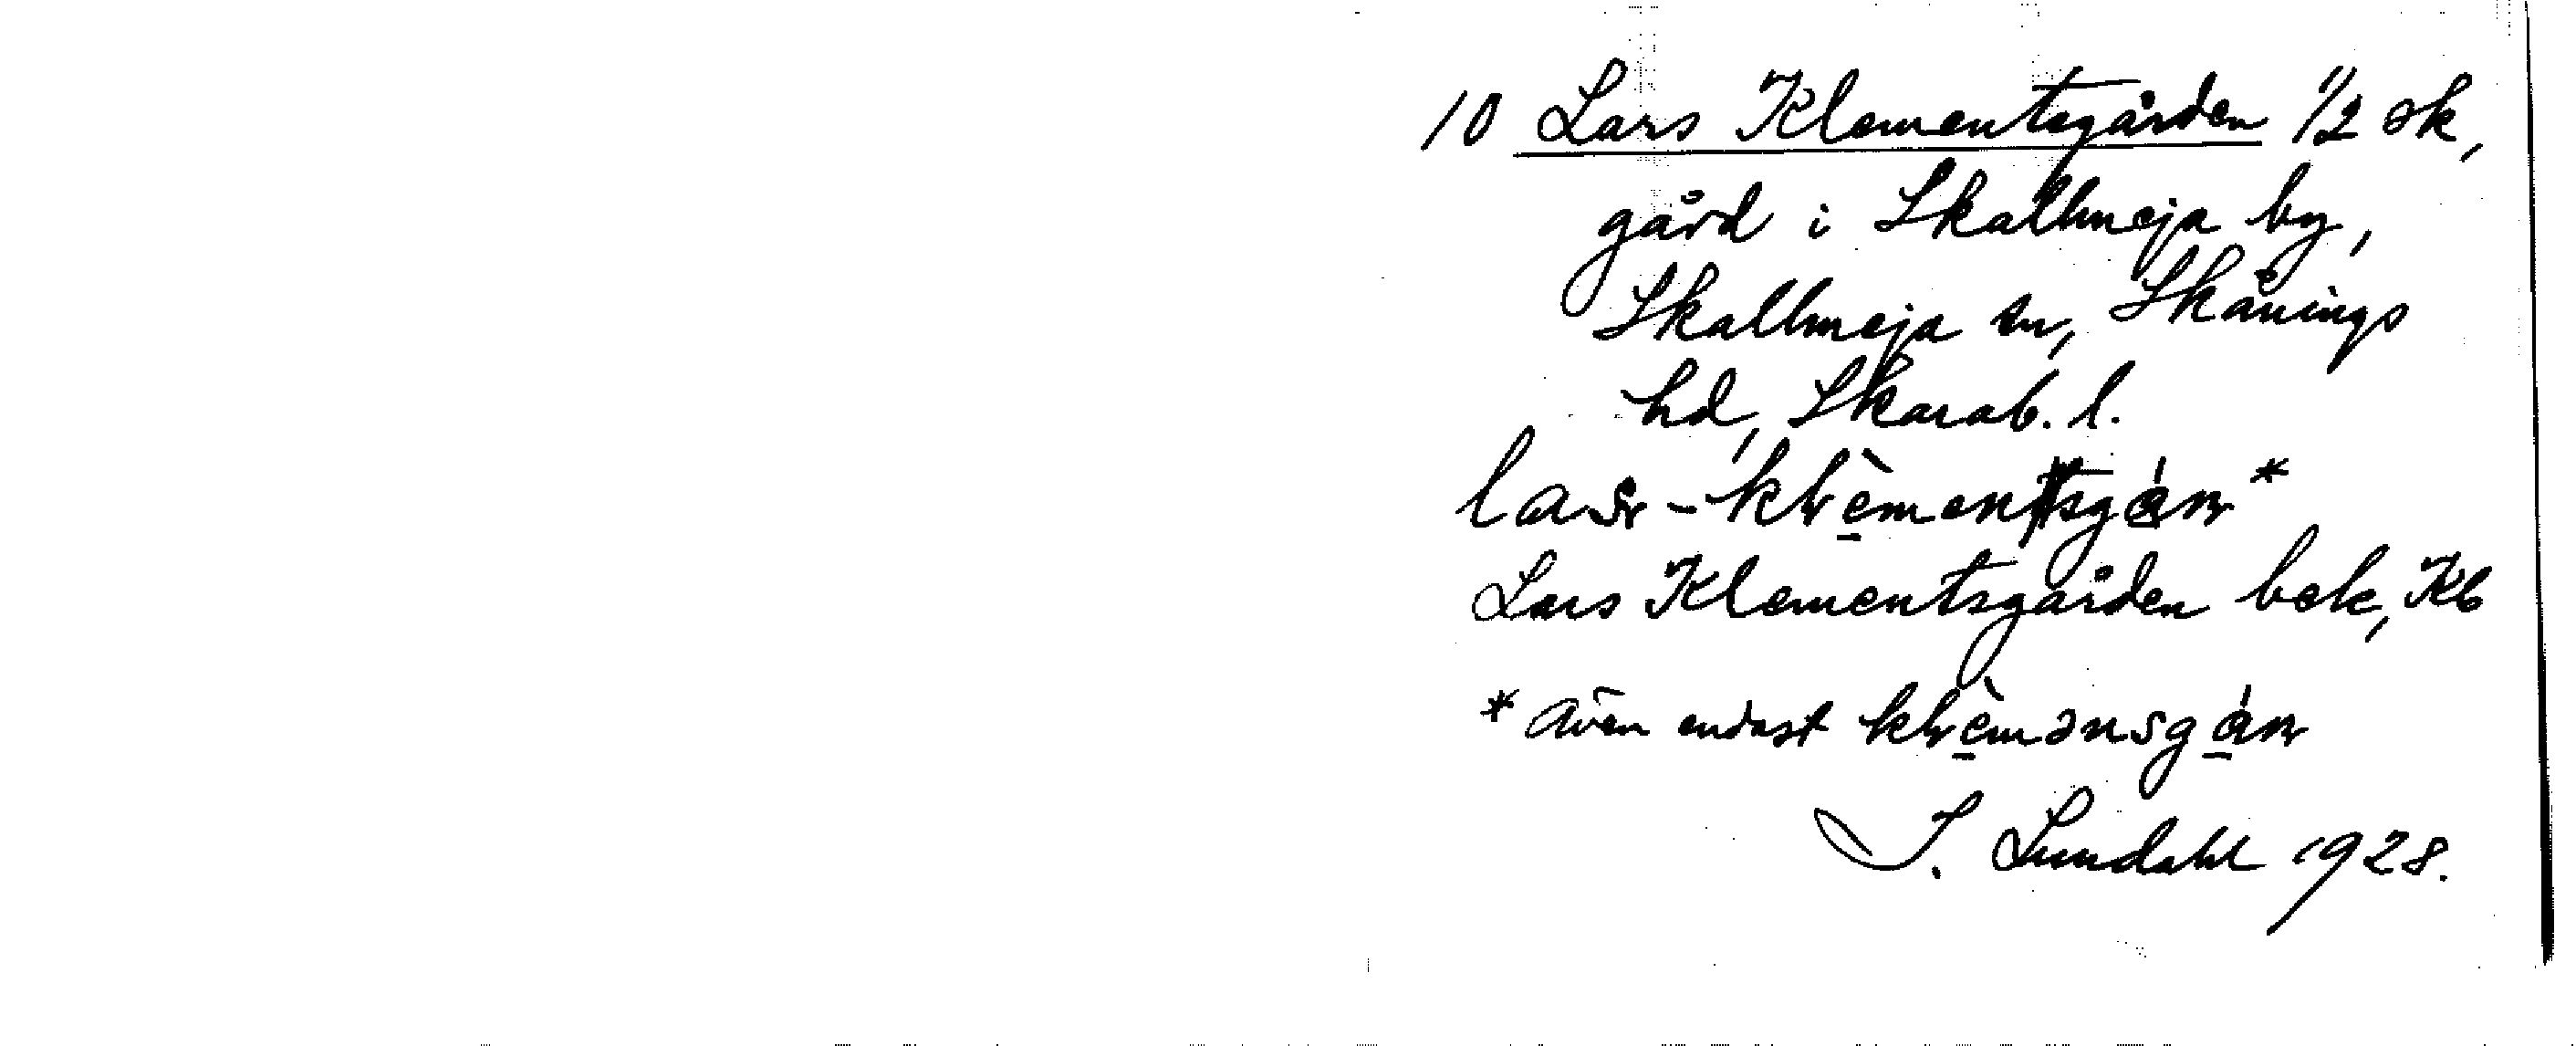 10 Lars Klementsgården 1/2 sk,
gård i Skallmeja by,
Skallmeja sn, Skånings
hd, Skarab. l.
Lars Klementsgården bek, Kb
* även endast
I. Lundahl 1928.